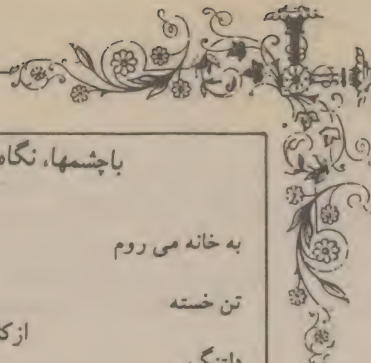 باچشمها، نگاه
به خانه می روم
تن خسته
دلتنگ